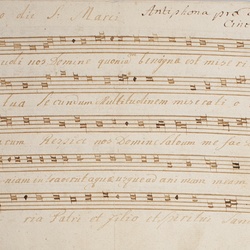 die S. Marci Antiphona pro
udi nos Domine quoniā benigna est miseri
tua Secundum Multitudinem miserati o
rum Respice nos Domine Salvum me fac
niam intraverunt aquæ usque ad animam meam
ria Patri et filio et Spiritui San